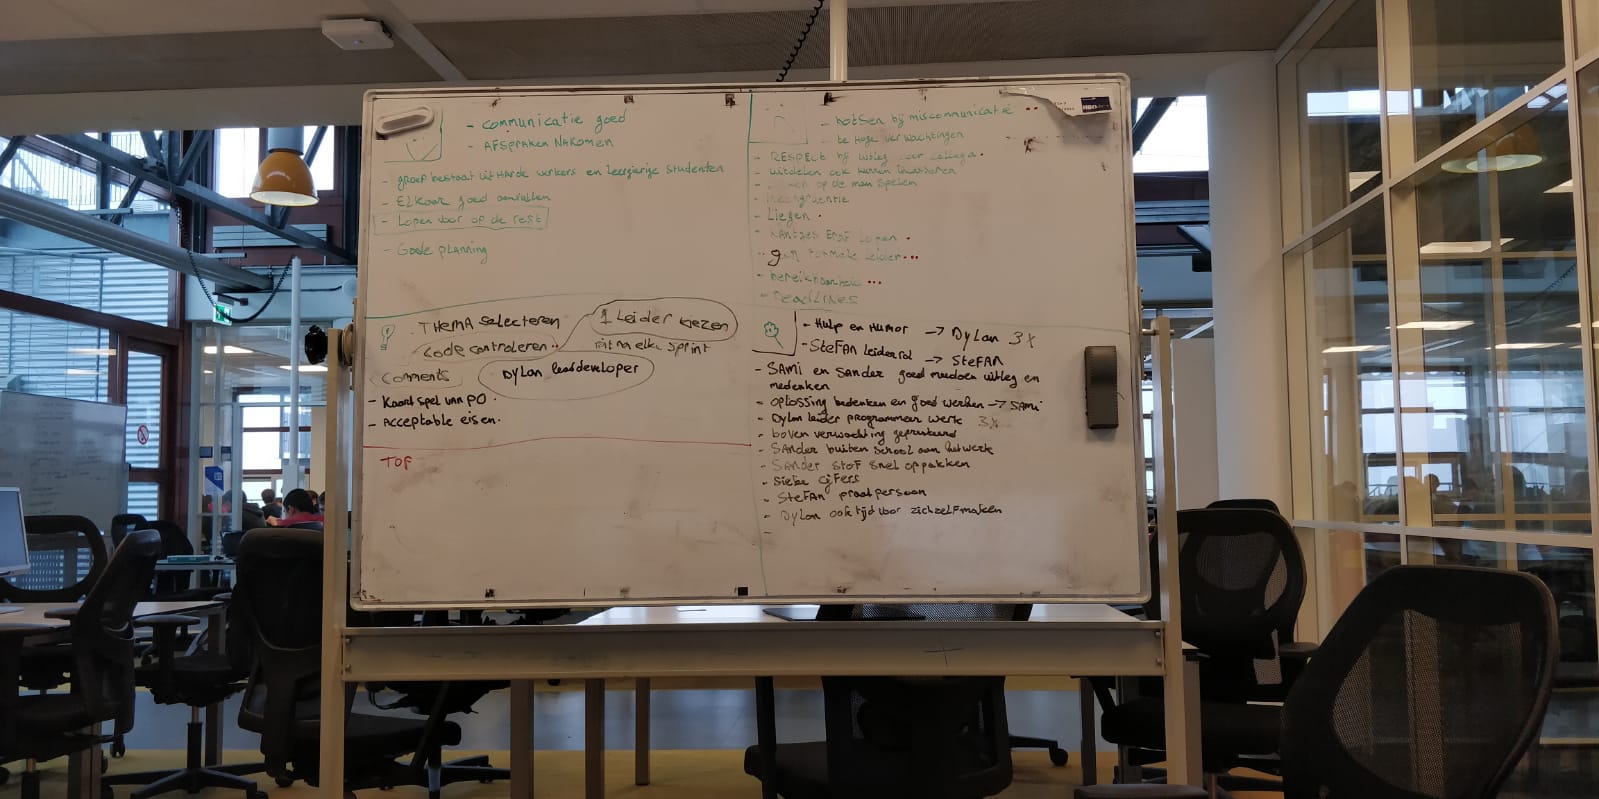 - communicatie goed
- AFSPRAKEN NAKOMEN
- groep bestaat uit HArde werkers en leergierige studenten
- ELkaar goed aanvullen
- Lopen voor op de rest
- Goede planning
- botsen bij miscommunicatie
te Hoge verwachtingen
- RESPECT bij uitleg voor collega.
- uitdelen ook kunnen incasseren
op de man spelen
- Liegen.
- kantjes eraf lopen.
geen formele leider
- bereikbaarheid
- DeadLines
THEMA selecteren
1 Leider kiezen
Code controleren
uit na elke sprint
Comments
Dylan leaddeveloper
- Kaart spel van PO.
- Acceptable eisen.
TOF
- Hulp en Humor → Dylan 3X
- SteFAN leiderrol → SteFAN
- SAMi en SANder goed meedoen uitleg en
medenken
- oplossing bedenken en goed werken → SAMi
- Dylan leider programmeer werk 3X
- boven verwachting gepresteerd
- SANder buiten school aan het werk
- SANder stof snel oppakken
- Sietse cijfers
- SteFAN praatpersoon
- Dylan ook tijd voor zichzelf maken
-